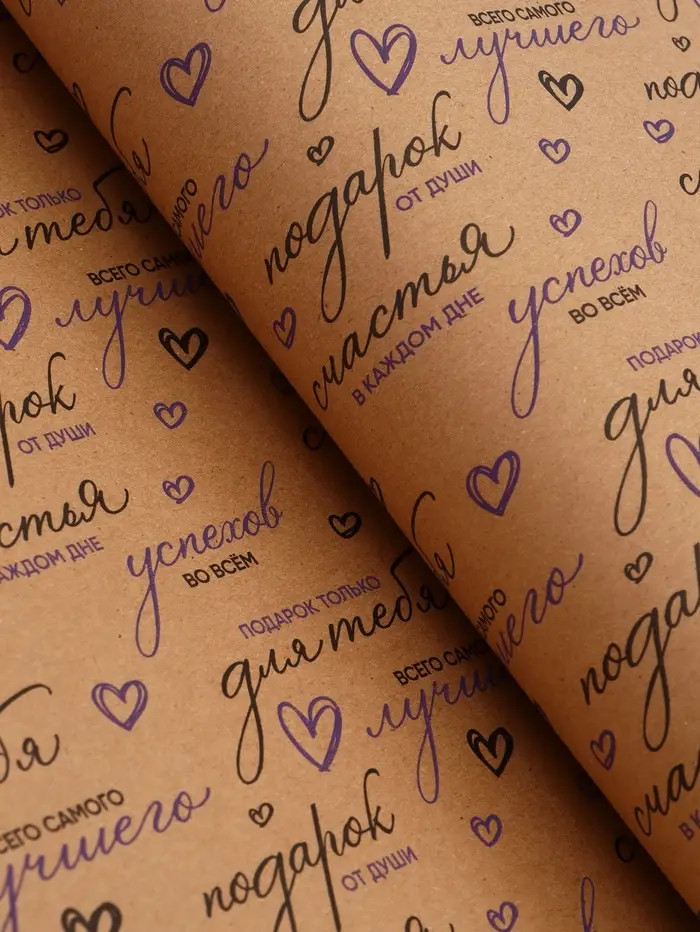 для
ВСЕГО САМОГО
лучшего
подарок
ОТ ДУШИ
счастья
В КАЖДОМ ДНЕ
успехов
ВО ВСЁМ
ПОДАРОК
для
тебя
ВСЕГО САМОГО
лучшего
подарок
ОТ ДУШИ
счастья
КАЖДОМ ДНЕ
успехов
ВО ВСЁМ
ПОДАРОК ТОЛЬКО
для тебя
ВСЕГО САМОГО
лучшего
ВСЕГО САМОГО
лучшего
подарок
ОТ ДУШИ